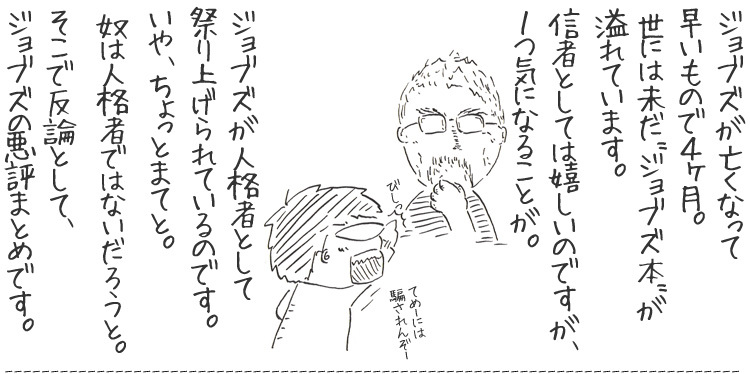 ジョブズが亡くなって
早いもので4ヶ月。
世には未だ"ジョブズ本"が
溢れています。
信者としては嬉しいのですが、
1つ気になることが。
びしっ
てめーには
騙されんぞー
ジョブズが人格者として
祭り上げられているのです。
いや、ちょっとまてと。
奴は人格者ではないだろうと。
そこで反論として、
ジョブズの悪評まとめです。